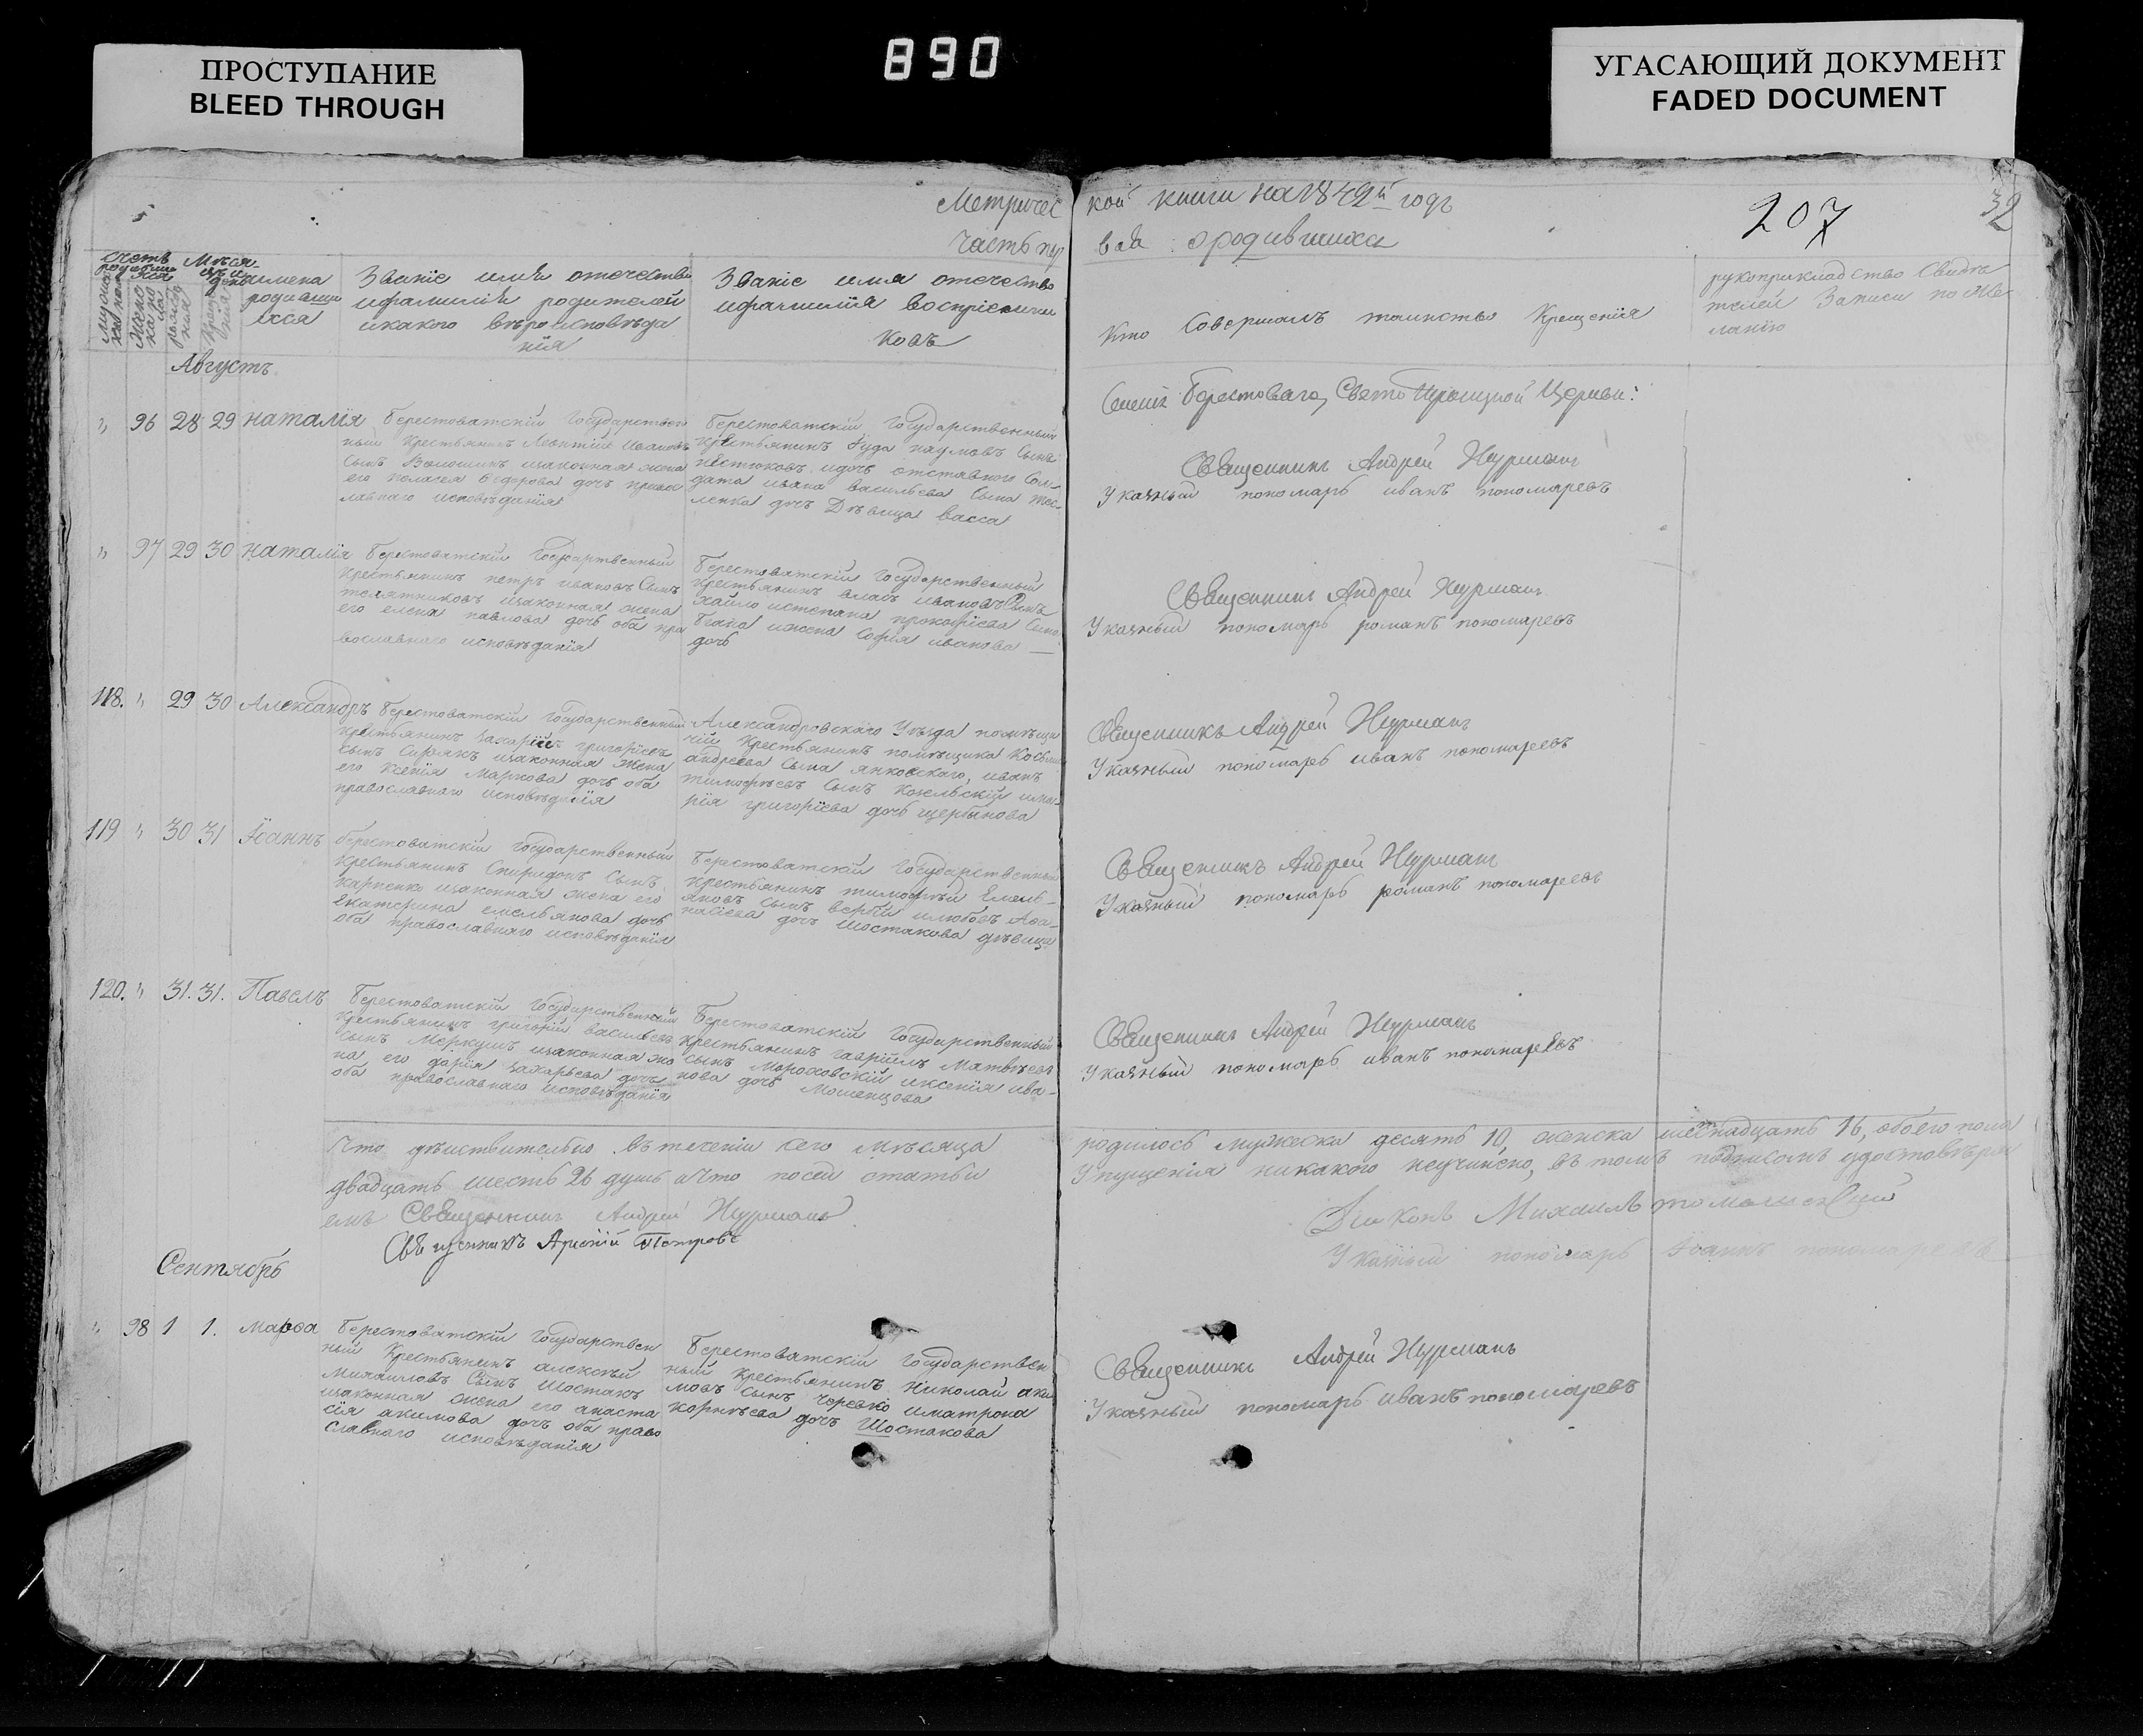 ПРОСТУПАНИЕ
BLEED THROUGH
890
УГАСАЮЩИЙ ДОКУМЕНТ
FADED DOCUMENT
Метричес кой книги на 1842й годъ
207
32
Часть пер вая о родившихся
Счетъ родивших
Мѣсяцъ и день
Мужеска пола
Женска пола
рожденія
Крещенія
имена
родивши
хся
Званіе имя отечество
и фамилія родителей
и какого вѣроисповѣда
нія
Званіе имя отечество
и фамилія воспріемни
ковъ
Кто Совершалъ таинство Крещенія
рукоприкладство Свидѣ
телей Записи по Же
ланію
Августъ
Берестоваго, Свято Троицкой Церкви:
" 96 28 29 наталія
Берестоватскій Государствен
ный Крестьянинъ Леонтій Ивановъ
Сынъ Волошинъ изаконная жена
его пелагея Федорова дочь право
лавнаго исповѣданія
Берестоватскій Государственный
крестьянинъ Іуда наумовъ Сынъ
Шестюковъ идочь отставного Сол-
дата ивана васильева Сына
ленка дочь Дѣвица васса
Священникъ Андрей Нурманъ
Указный пономарь иванъ пономаревъ
" 97 29 30 наталія
Берестоватскій Государтвенный
Крестьянинъ петръ ивановъ Сынъ
телятниковъ изаконная жена
его елена павлова дочь оба пра
вославнаго исповѣданія
Берестоватскій Государственный
крестьянинъ власъ ивановъ Сынъ
хайло истепана прокофіева Сына
жена Софія иванова
дочь
Священникъ Андрей Нурманъ
Указный пономарь романъ пономаревъ
118. " 29 30 Александръ
Берестоватскій Государственный
крестьянинъ захарій григоріевъ
сынъ Сирякъ изаконная жена
его ксенія Маркова дочь оба
православнаго исповѣданія
Александровскаго Уѣзда помѣщи
чій крестьянинъ помѣщика Косьмы
андреева Сына янковскаго, иванъ
тимофѣевъ Сынъ Козельскій има-
рія григоріева дочь щербакова
Священникъ Андрей Нурманъ
Указный пономарь иванъ пономаревъ
119 " 30 31 Іоаннъ
Берестоватскій Государственный
Крестьянинъ Спиридонъ Сынъ
карпенко изаконная жена его
екатерина емельянова дочь
оба православнаго исповѣданія
Берестоватскій Государственный
крестьянинъ тимофѣй Емель-
яновъ Сынъ вербій илюбовъ Афа-
насіева дочь Шостакова дѣвица
Священникъ Андрей Нурманъ
Указный пономарь романъ пономаревъ
120. " 31. 31. Павелъ
Берестоватскій Государственный
Крестьянинъ григорій васильевъ
Сынъ Меркушъ изаконная же
на его дарія захарьева дочь
оба православнаго исповѣданія
Берестоватскій Государственный
крестьянинъ гавріилъ Матвѣевъ
сынъ Мороховскій иксенія ива-
нова дочь Мошенцова
Священникъ Андрей Нурманъ
Указный пономарь иванъ пономаревъ
Что дѣйствительно въ теченіи сего мѣсяца родилось мужеска десять 10, женска шеснадцать 16, обоего пола
двадцать шесть 26 душъ и что посей статьи Упущенія никакого неучинено, въ томъ подписомъ удостовѣря
емъ Священникъ Андрей Нурманъ
Священникъ Арсеній Петровъ
Діаконъ Михаилъ
Указный пономарь Іоаннъ пономаревъ
Сентябрь
" 98 1 1. Марфа
Берестоватскій Государствен
ный Крестьянинъ алексѣй
Михаиловъ Сынъ Шостакъ
изаконная жена его анаста
сія акимова дочь оба право
славнаго исповѣданія
Берестоватскій Государствен
ный крестьянинъ Николай аки
мовъ Сынъ Черевко иматрона
корнѣева дочь Шостакова
Священникъ Андрей Нурманъ
Указный пономарь иванъ пономаревъ